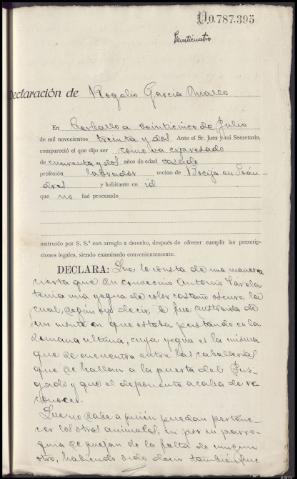 D.9.787.395
Veinticuatro
Declaración de Rogelio García
En Carballo a veinticinco de Julio
de mil novecientos treinta y dos Ante el Sr. Juez y mí Secretario,
compareció el que dijo ser como va expresado
de cuarenta y dos años de edad casado
profesión labrador vecino de
y habitante en id
que no fué procesado
instruído por S. S.ª con arreglo a derecho, después de ofrecer cumplir las prescrip-
ciones legales, siendo examinado convenientemente.
DECLARA: Que le consta de una manera
cierta que su convecino Antonio Varela
tenía una yegua de color castaño oscuro la
cual, según oyó decir, le fue sustraida de
un monte en que estaba pastando en la
semana última, cuya yegua es la misma
que se encuentra entre las caballerías
que se hallan a la puerta del Juz-
gado y que el deponente acaba de re-
conocer.
Que no sabe a quien puedan pertene-
cer los otros animales, ni por su parro-
quia se quejan de la falta de ningún
otro, habiendo oido decir también que